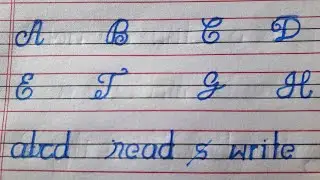 A B C D
E F G H
abcd read & write